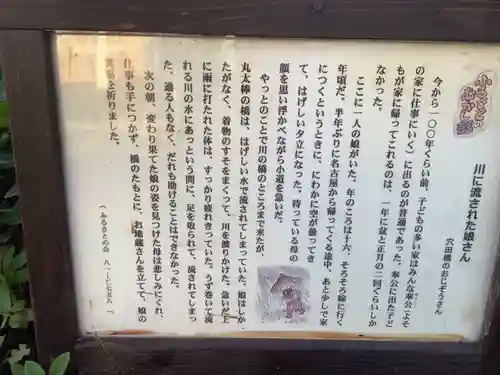 ふるさとの
むかし話
川に流された娘さん
穴田橋のおじぞうさん
今から一〇〇年くらい前、子どもの多い家はみんな奉公(よそ
の家に仕事にいく)に出るのが普通であった。奉公に出た子ど
もが家に帰ってこれるのは、一年に盆と正月の二回くらいしか
なかった。
ここに一人の娘がいた。年のころは十六、そろそろ嫁に行く
年頃だ。半年ぶりに名古屋から帰ってくる途中、あと少しで家
につくというときに、にわかに空が曇ってき
て、はげしい夕立になった。待っている母の
顔を思い浮かべながら小道を急いだ。
やっとのことで川の橋のところまで来たが、
丸太棒の橋は、はげしい水で流されてしまっていた。娘はしか
たがなく、着物のすそをまくって、川を渡りかけた。急いだ上
に雨に打たれた体は、すっかり疲れきっていた。うず巻いて流
れる川の水にあっという間に、足を取られて、流されてしまっ
た。通る人もなく、だれも助けることはできなかった。
次の朝、変わり果てた娘の姿を見つけた母は悲しみにくれ、
仕事も手につかず、橋のたもとに、お地蔵さんを立てて、娘の
冥福を祈りました。
(ふるさとの会 八一-七五八一)